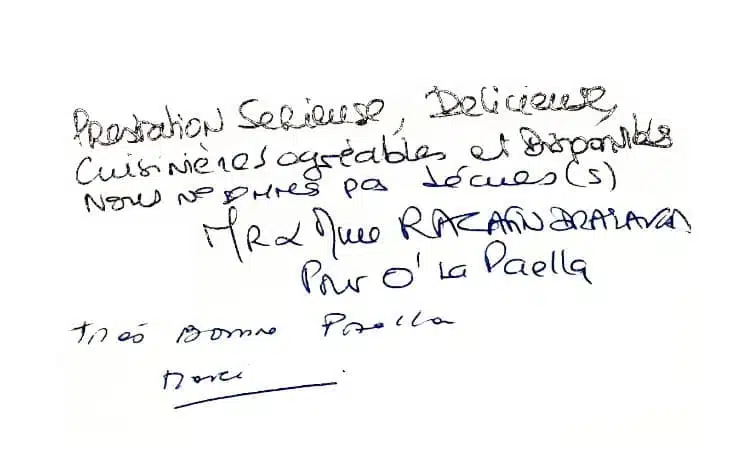 Prestation Serieuse, Delicieuse,
Cuisinières agréables et Disponibles
Nous ne sommes pas décues(s)
MR & Mme
Pour O' la Paella
Très Bonne Paella
Merci